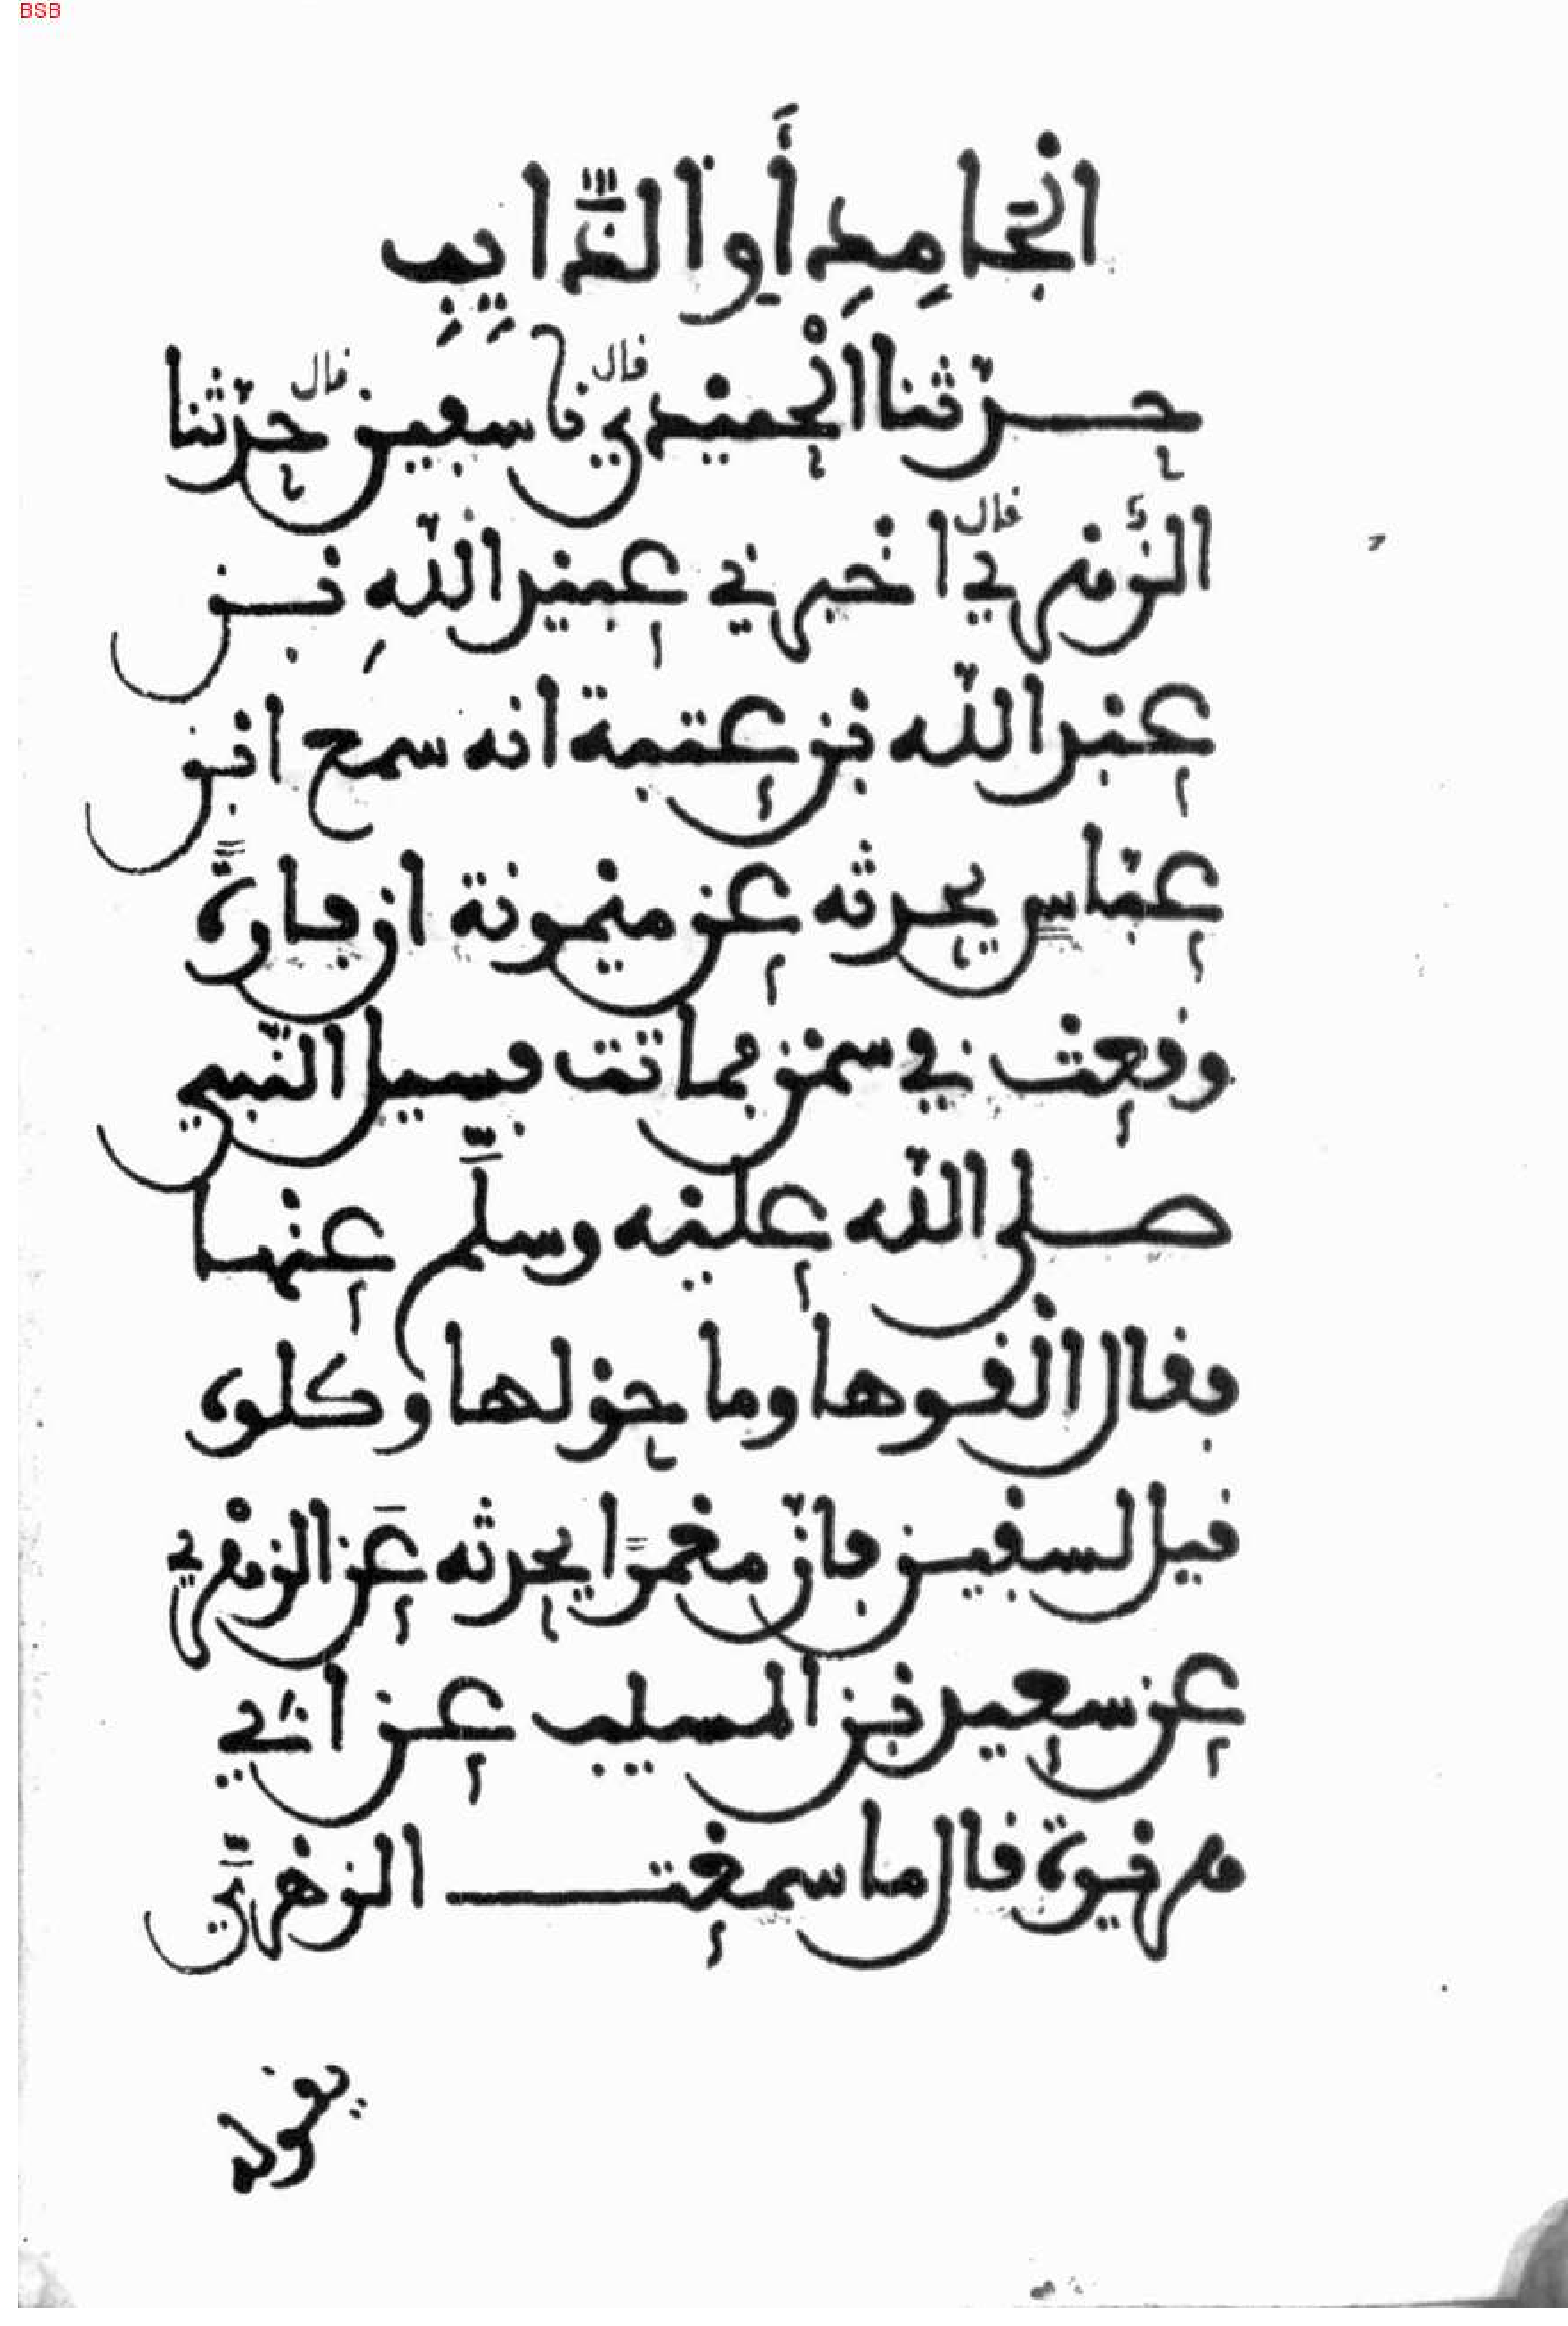 BSB
الْجَامِدِ أَوِ الذَّايِبِ
حدّثنا الْحميْدي قال نا سفين قال حدّثنا
الزُّهري قال اخْبرني عبيْد اللّهِ بن
عبْد اللّه بْن عتبة انه سمع ابْن
عبّاس يحدثه عن ميْمونة ان فارةً
وقعتْ في سمْن فماتت فسيل النّبي
صلى اللّه عليْه وسلَّم عنْها
فقال الْقوها وما حوْلها وكلوه
قيل لسفْين فانّ معْمرًا يحدثه عَن الزهْري
عن سعيد بْن المسيب عن ابي
هريْرة قال ما سمعْت الزهْريَّ
يقوله